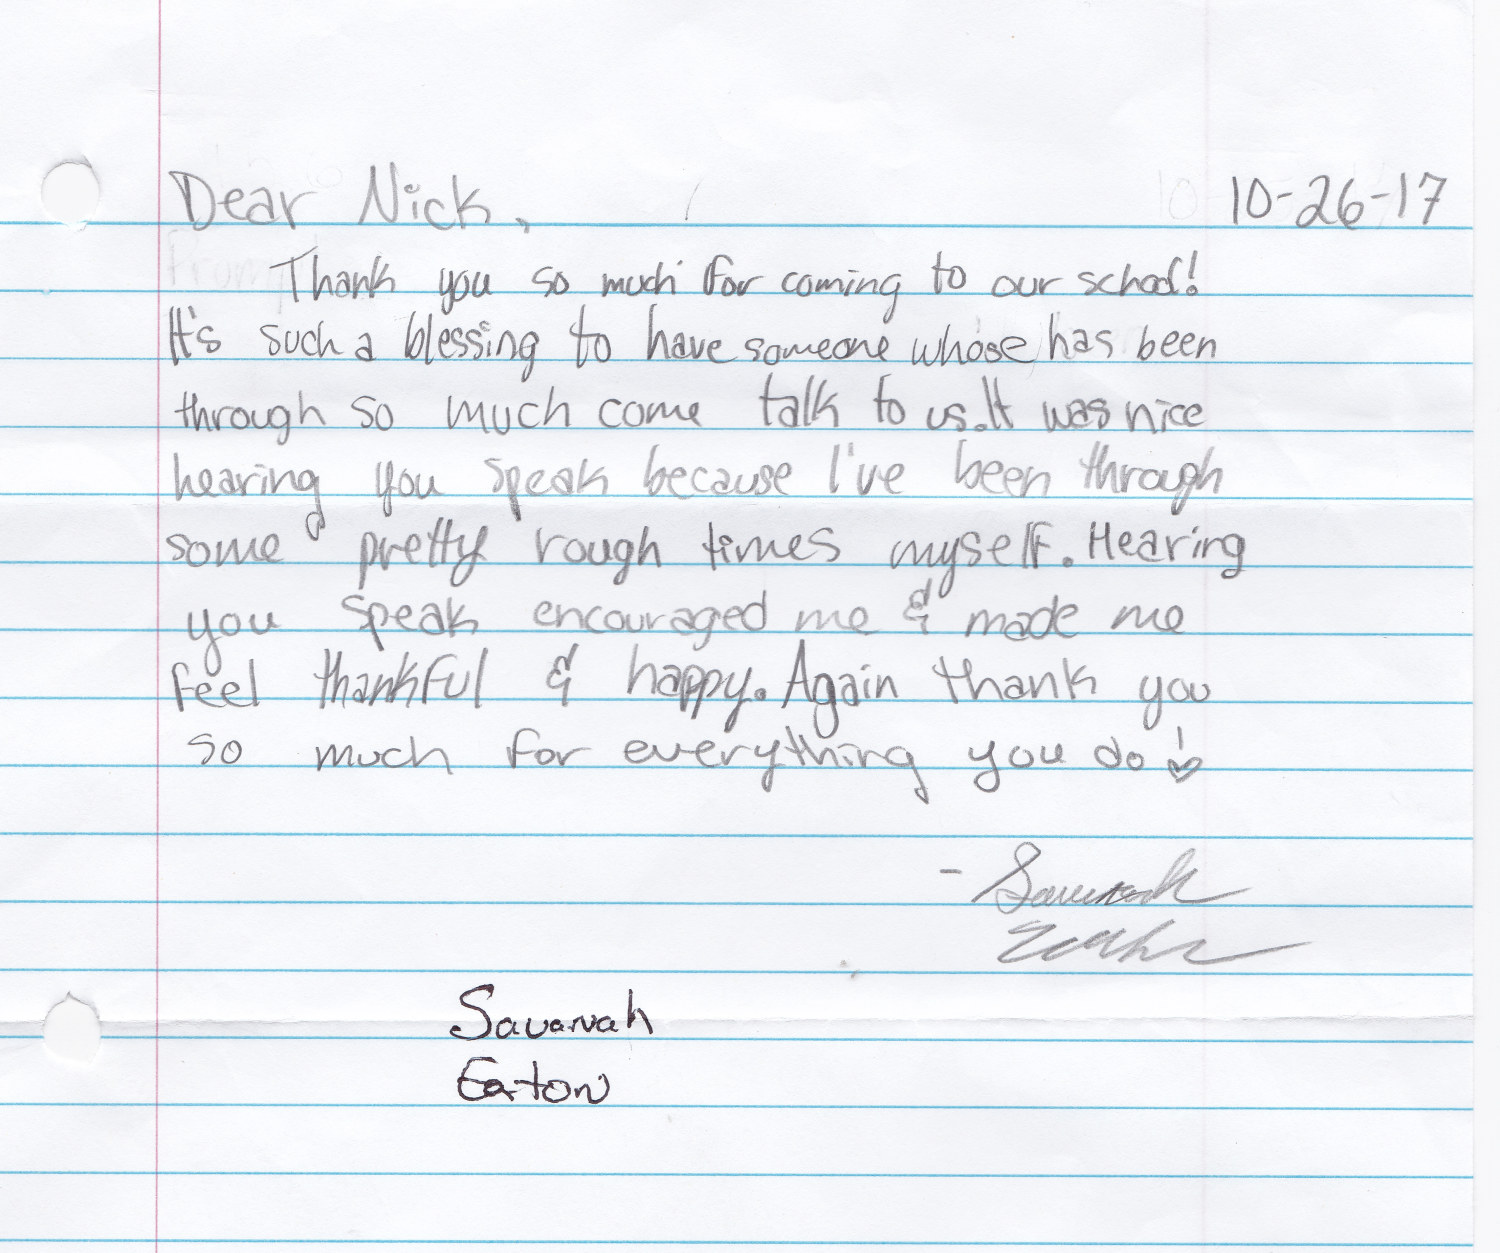 Dear Nick, 10-26-17
Thank you so much for coming to our school!
It's such a blessing to have someone whose has been
through so much come talk to us. It was nice
hearing you speak because I've been through
some pretty rough times myself. Hearing
you speak encouraged me & made me
feel thankful & happy. Again thank you
so much for everything you do!
- Savannah
Savannah
Eaton